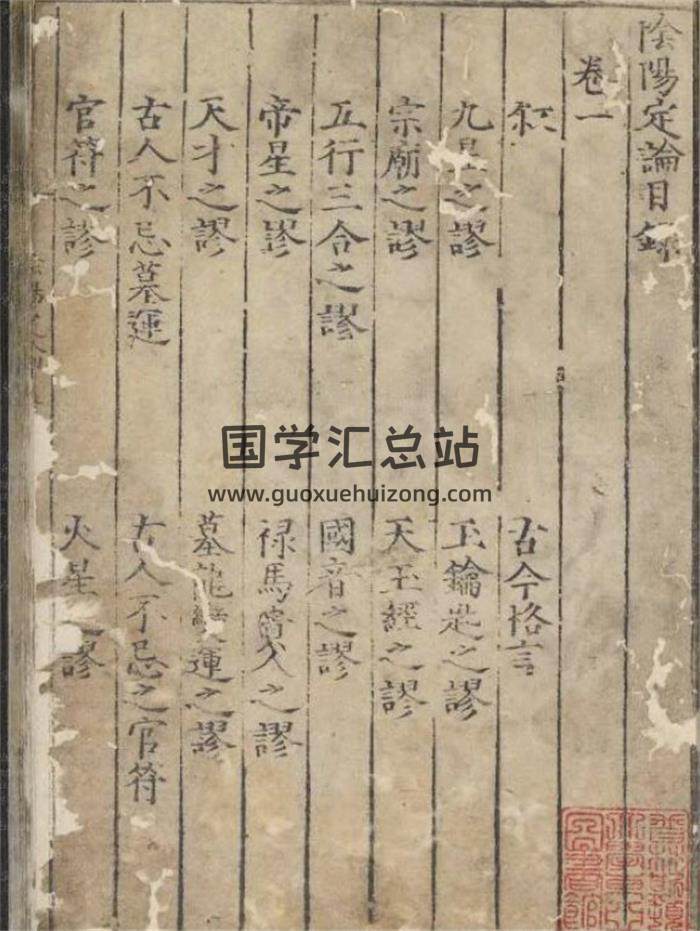 陰陽定論目錄
卷一
古今格言
九星之謬 玉鑰匙之謬
宗廟之謬 天玉經之謬
五行三合之謬 國音之謬
帝星之謬 禄馬貴人之謬
天才之謬 墓龍變運之謬
古人不忌墓運 古人不忌之官符
官符之謬 火星之謬
国学汇总站
www.guoxuehuizong.com